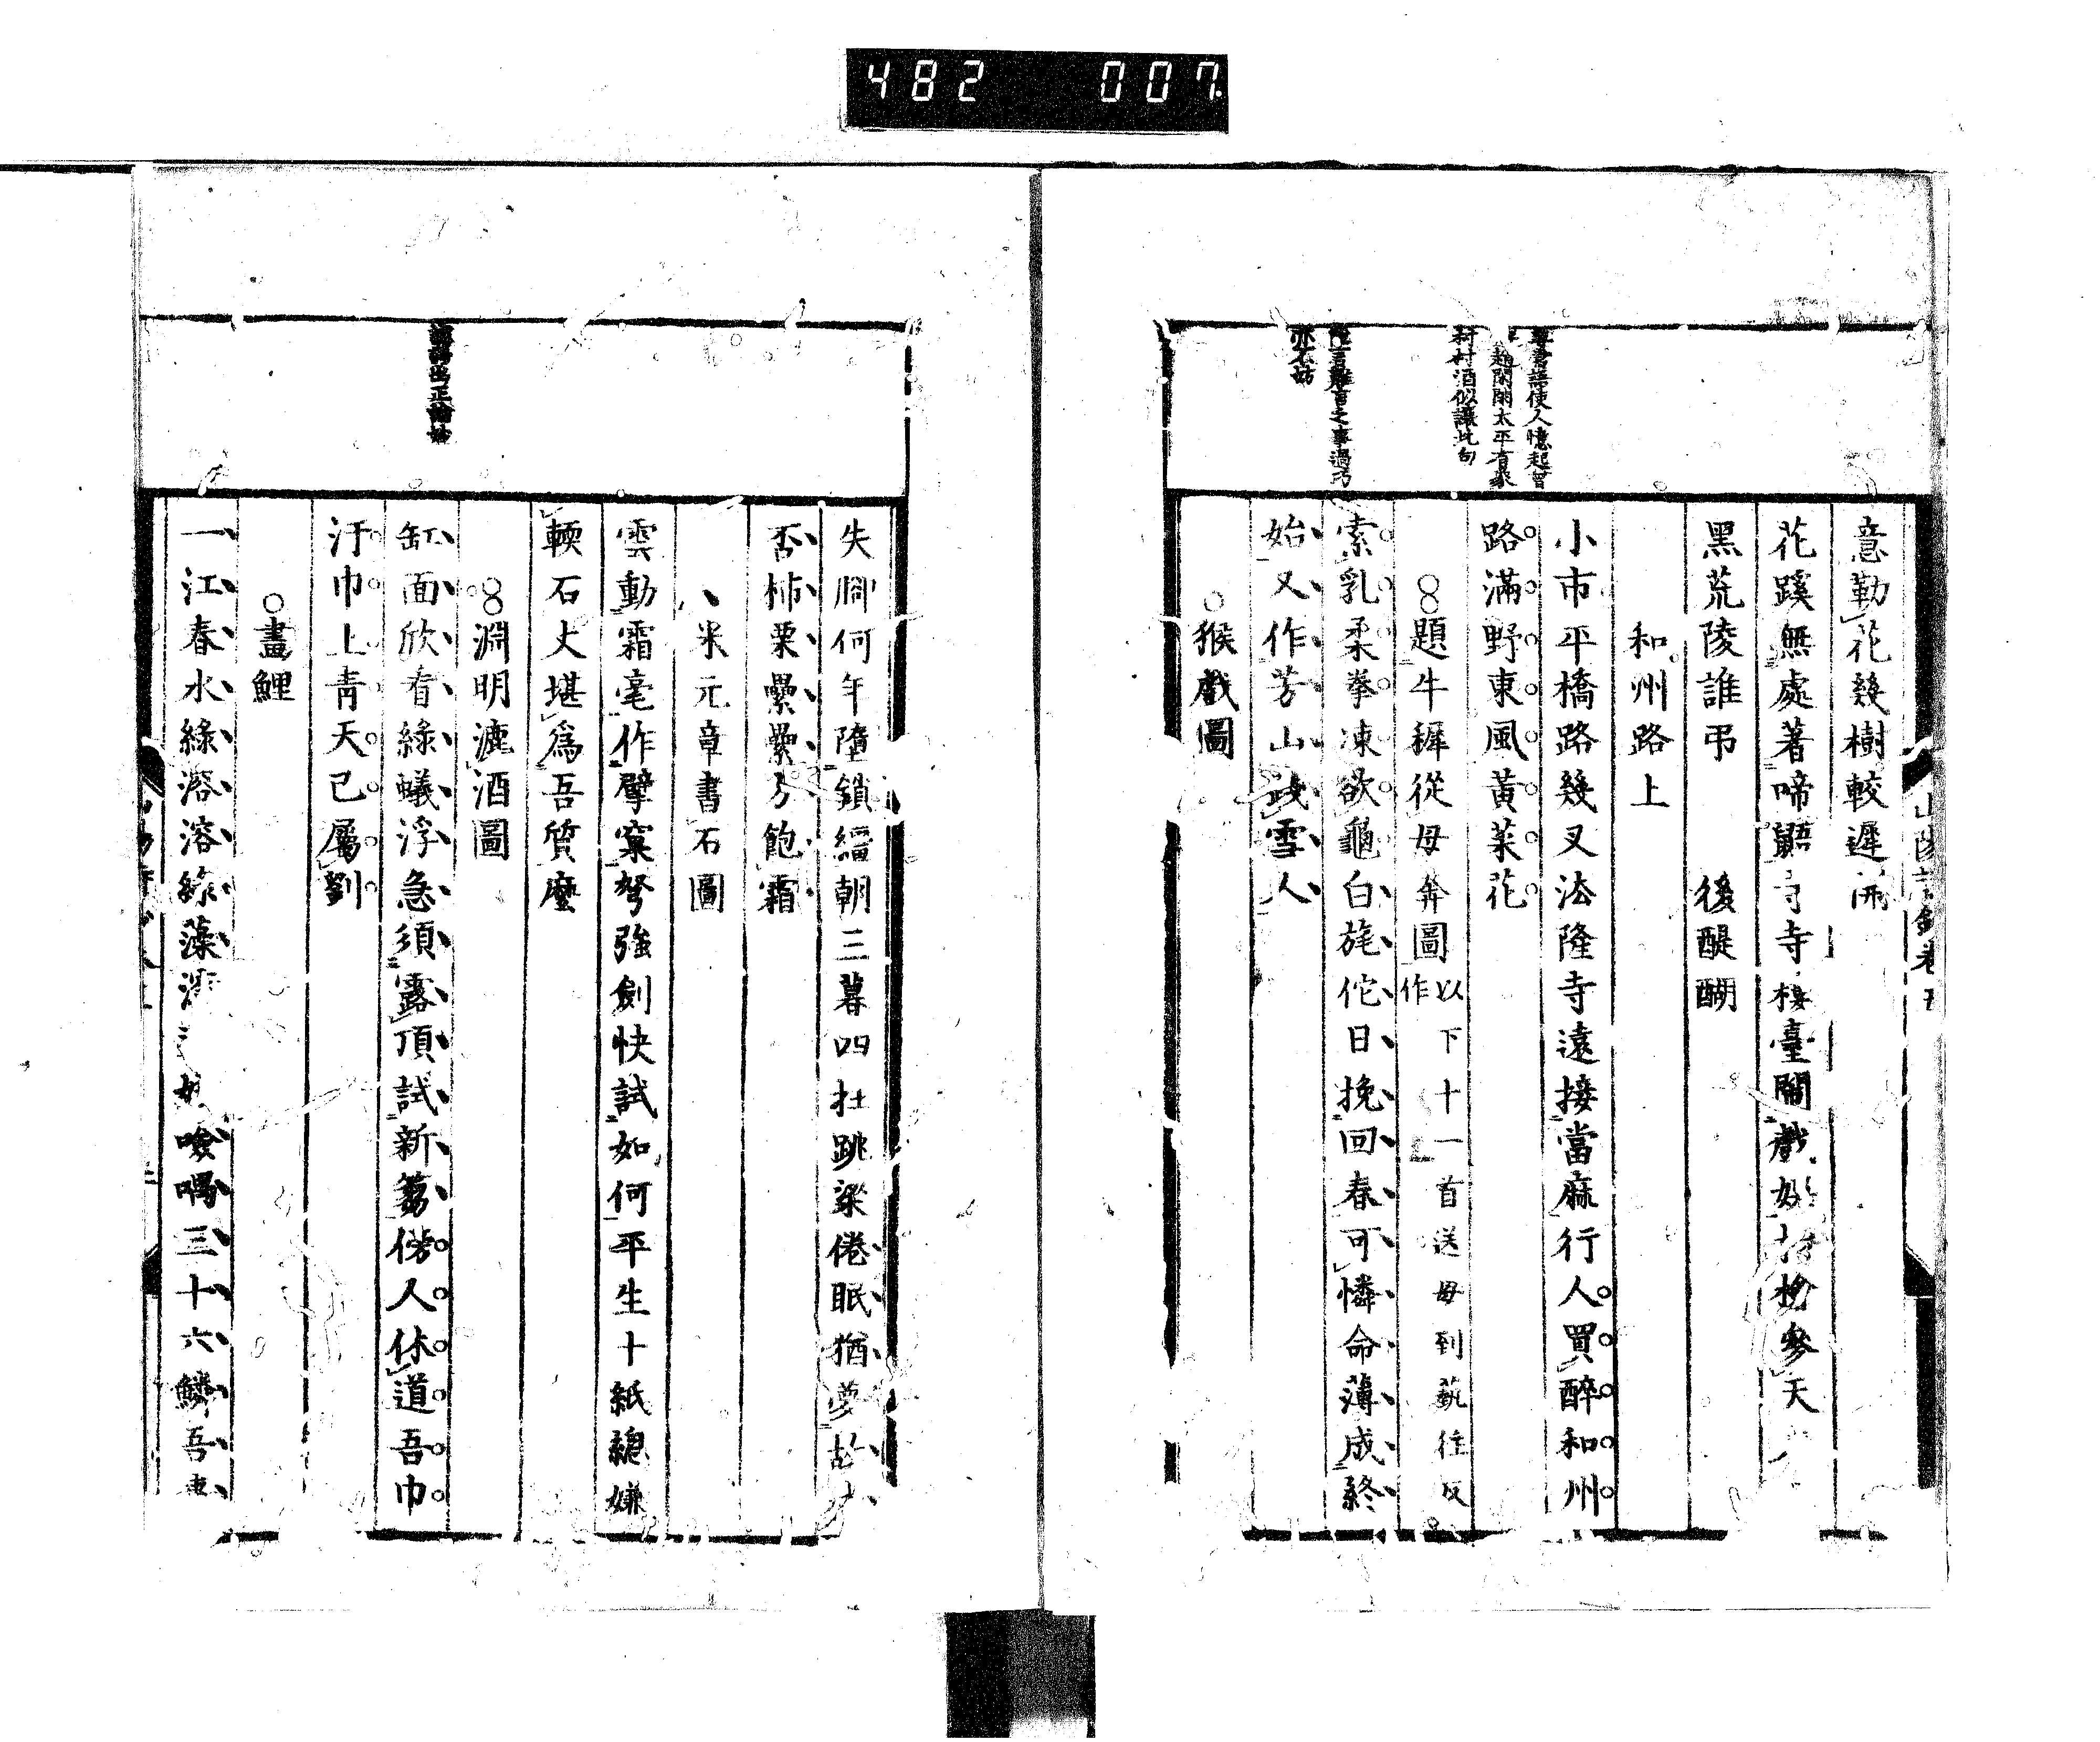 482 007
山陽詩鈔卷五
意勤花幾樹較遲開
花蹊無處著啼鵑寺樓臺關戲參天
黑荒陵誰弔 後醍醐
和州路上
小市平橋路幾叉法隆寺遠接當麻行人買醉和州
路滿野東風黃菜花
題牛穉從母奔圖以下十一首送母到藝往反
作
索乳柔拳凍欲龜白旄佗日挽回春可憐命薄成終
始又作芳山踐雪人
猴戲圖
使人憶起曾
趙閑閑太平有象
村村酒似讓此句
言難言之事過巧
亦不妨
失脚何年墮鎖縕朝三暮四狂跳梁倦眠猶夢故
否柿栗纍纍乃飽霜
米元章書石圖
雲動霜毫作擘窠弩強劍快試如何平生十紙總嫌
輭石丈堪爲吾質麼
淵明漉酒圖
缸面欣看綠蟻浮急須露頂試新篘傍人休道吾巾
汙巾上青天已屬劉
畫鯉
一江春水綠溶溶綠藻喰喁三十六鱗吾